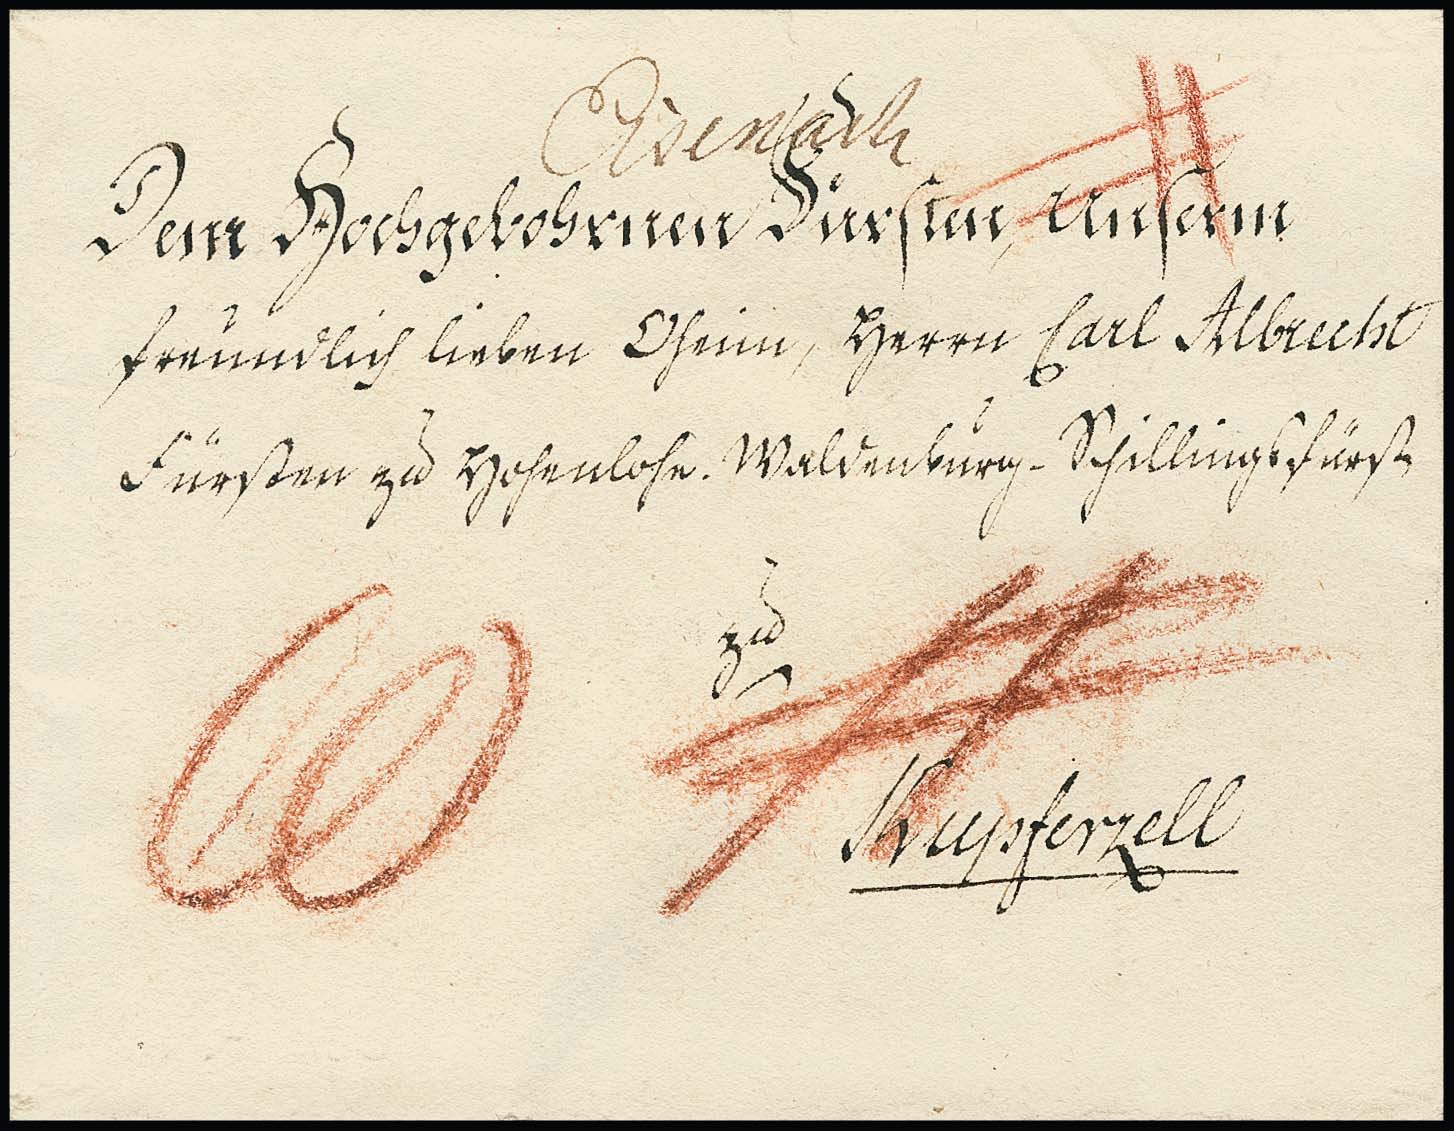 Eisenach
Dem Hochgebohrnen Fürsten, Unserm
freundlich lieben Oheim, Herrn Carl Albrecht
Fürsten zu Hohenlohe-Waldenburg-Schillingsfürst
zu
Kupferzell